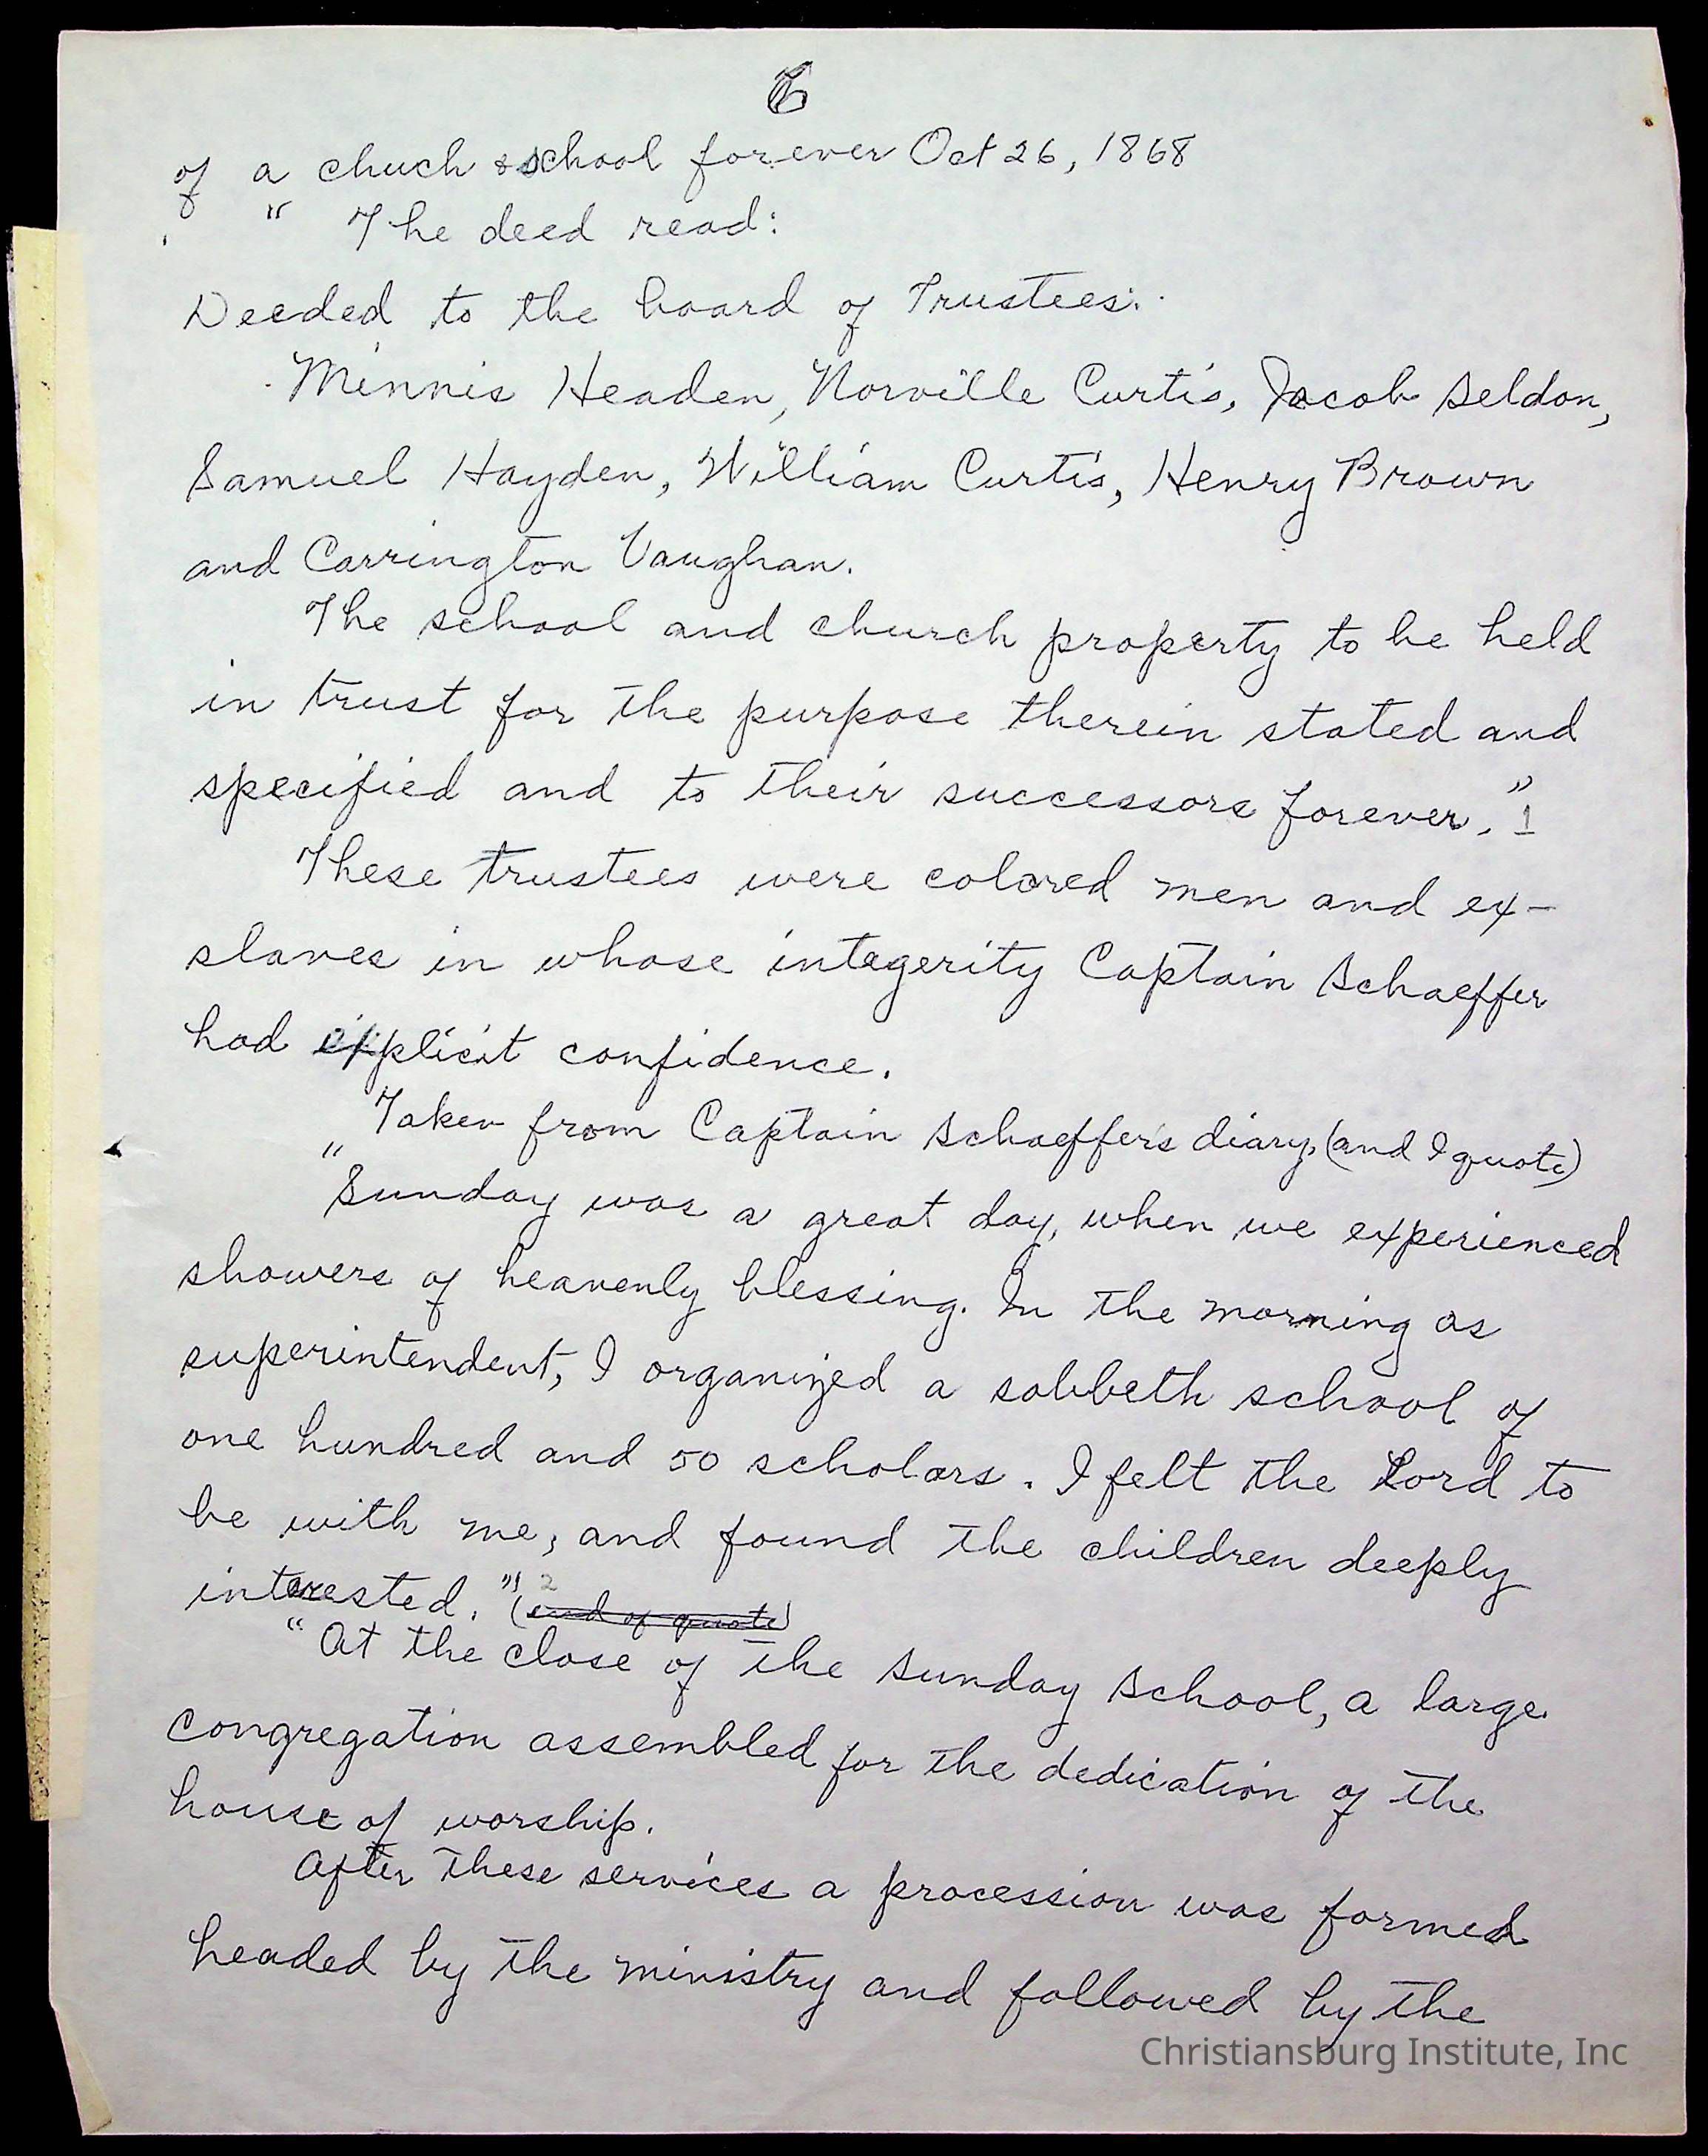 6
of a chuch & school forever Oct 26, 1868
" The deed read:
Deeded to the board of Trustees:
Minnis Headen, Norville Curtis, Jacob Seldon,
Samuel Hayden, William Curtis, Henry Brown
and Carrington Vaughan.
The school and church property to be held
in trust for the purpose therein stated and
specified and to their successors forever." 1
These trustees were colored men and ex-
slaves in whose integerity Captain Schaeffer
had explicit confidence.
Taken from Captain Schaeffer's diary, (and I quote)
"Sunday was a great day, when we experienced
showers of heavenly blessing. In the morning as
superintendent, I organized a sabbeth school of
one hundred and 50 scholars. I felt the Lord to
be with me, and found the children deeply
interested." 2 (end of quote)
"At the close of the Sunday School, a large
congregation assembled for the dedication of the
house of worship.
After these services a procession was formed
headed by the ministry and followed by the
Christiansburg Institute, Inc